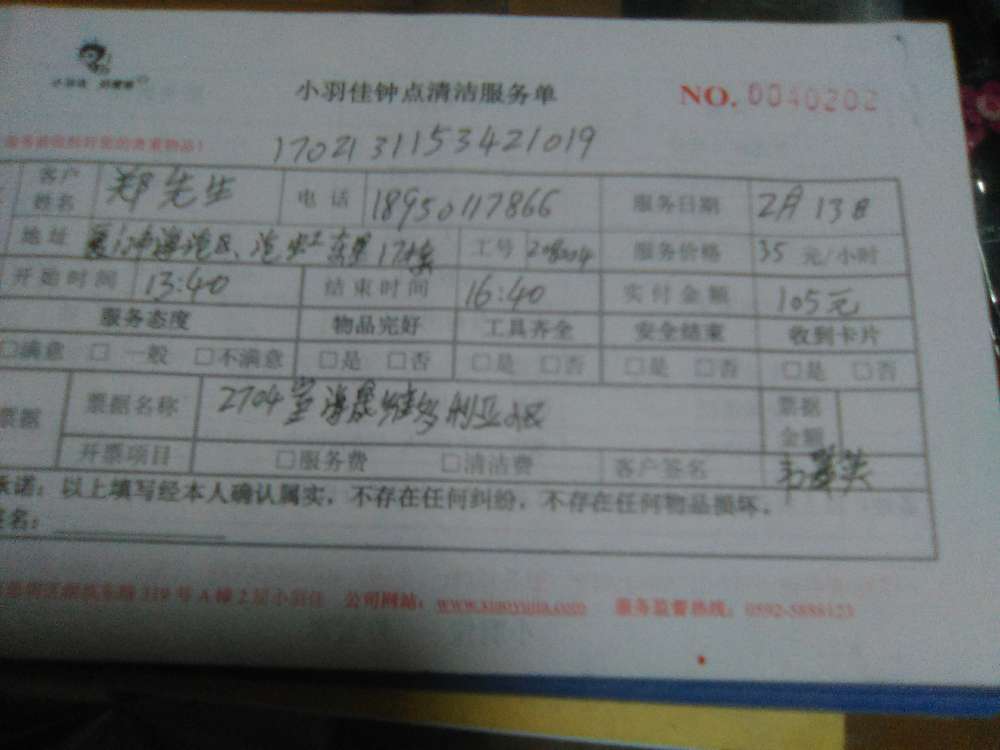 小羽佳钟点清洁服务单 NO. 0040202
1702131153421019
客户姓名 郑先生 电话 18950117866 服务日期 2月13日
地址 厦门市海沧区、沧 东里17栋 工号 服务价格 35 元/小时
开始时间 13:40 结束时间 16:40 实付金额 105元
服务态度 物品完好 工具齐全 安全结束 收到卡片
□满意 □一般 □不满意 □是 □否 □是 □否 □是 □否 □是 □否
票据 票据名称 2704室 维多利亚 票据金额
开票项目 □服务费 □清洁费 客户签名
承诺：以上填写经本人确认属实，不存在任何纠纷，不存在任何物品损坏。
签名：
319号A幢2层小羽佳 公司网站：www.xiaoyujia.com 服务监督热线：0592-5888123